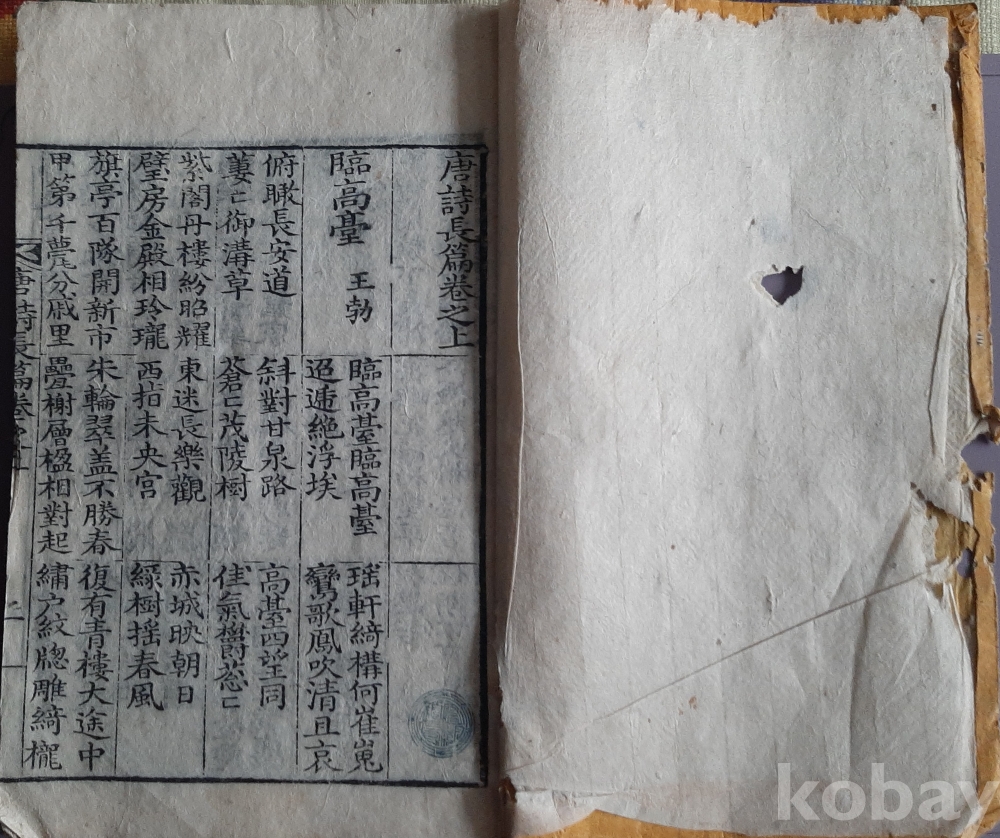 唐詩長篇卷之上
臨高臺 王勃
臨高臺臨高臺
迢逓絶浮埃
瑶軒綺構何崔嵬
鸞歌鳳吹清且哀
俯瞰長安道
萋〻御溝草
斜對甘泉路
蒼〻茂陵樹
高臺西望同
佳氣欝葱〻
紫閣丹樓紛昭耀
璧房金殿相玲瓏
東迷長樂觀
西指未央宮
赤城映朝日
緑樹揺春風
旗亭百隊開新市
甲第千甍分戚里
朱輪翠盖不勝春
疊榭層楹相對起
復有青樓大途中
繡户紋牕雕綺櫳
唐詩長篇卷之上
kobay